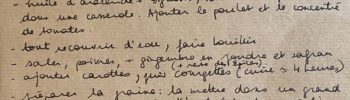 - huile d'arachide +
dans une casserole. Ajouter le poulet et le concentré
de tomates
- tout recouvrir d'eau, faire bouillir
- saler, poivrer, + gingembre en poudre et safran
(+ reste des épices)
- ajouter carottes, puis courgettes (cuire ≈ 4 heures)
- préparer la graine: la mettre dans un grand